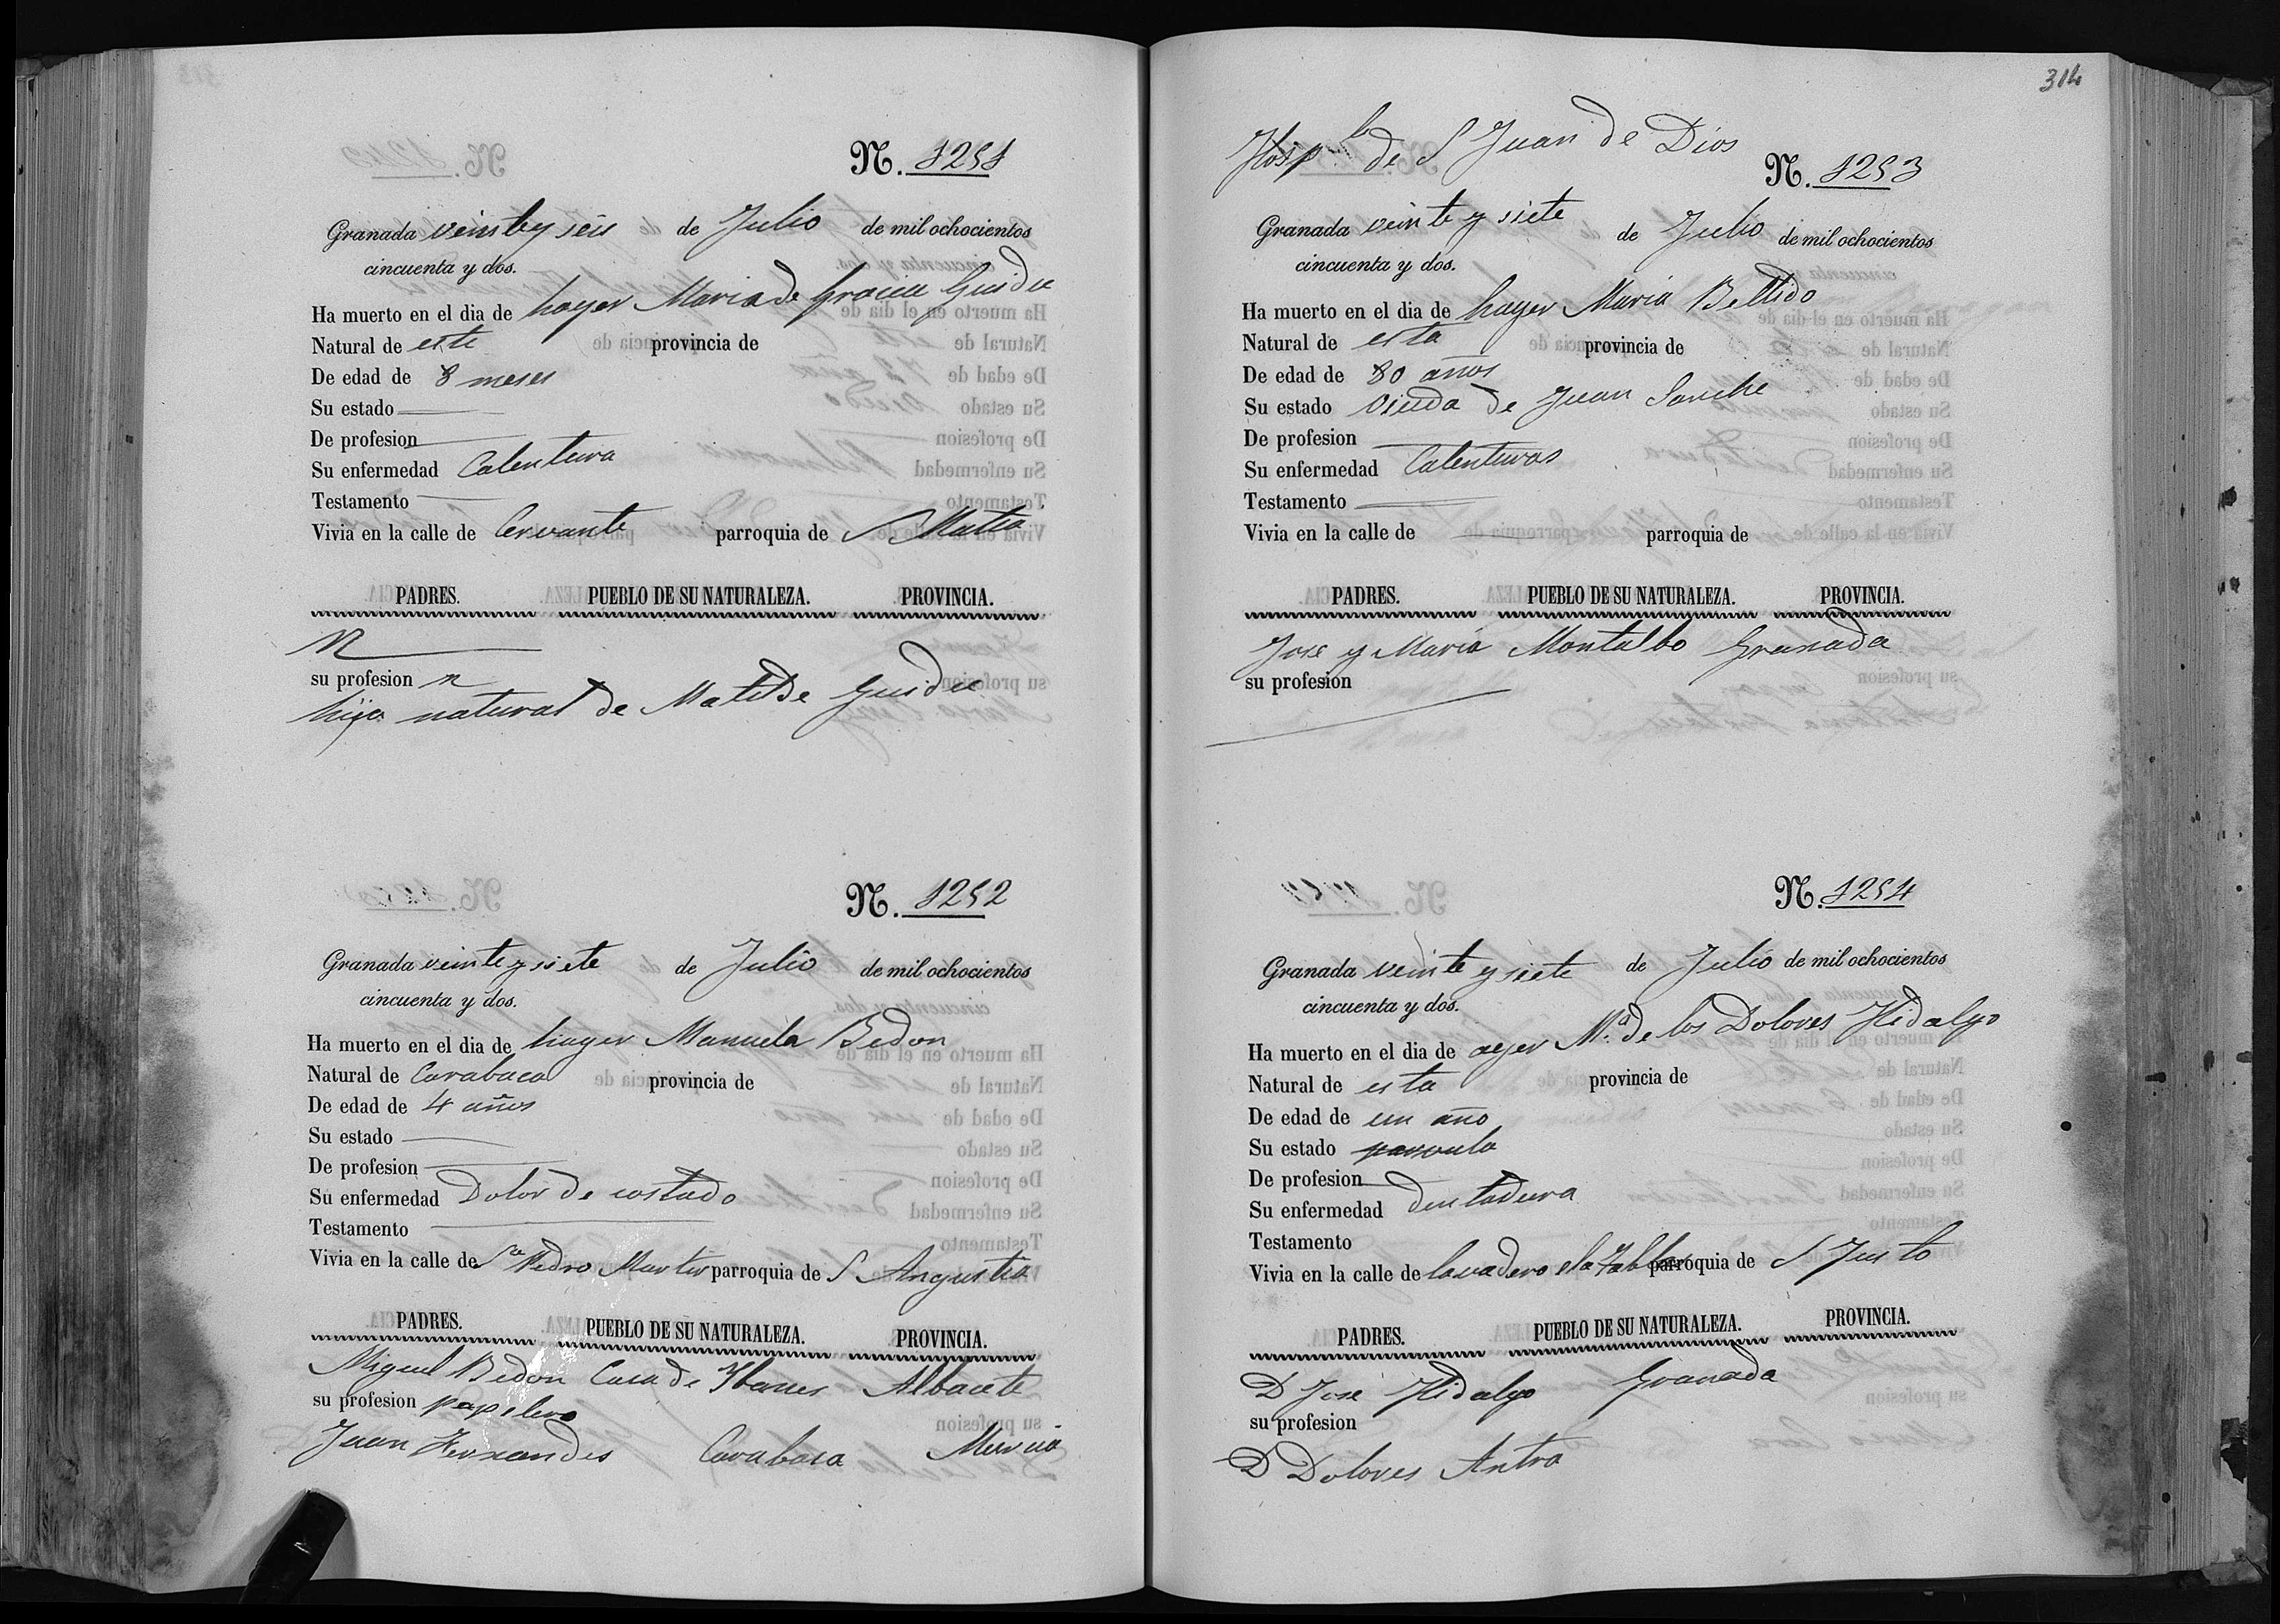 N. 1251
Granada veinte y seis de Julio de mil ochocientos
cincuenta y dos.
Ha muerto en el dia de hayer Maria de Gracia Guidu
Natural de este provincia de
De edad de 8 meses
Su estado
De profesion
Su enfermedad Calentura
Testamento
Vivia en la calle de Cervante parroquia de S Matia
PADRES. PUEBLO DE SU NATURALEZA. PROVINCIA.
N
su profesion n
hija natural de Matilde Guidu
N. 1252
Granada veinte y siete de Julio de mil ochocientos
cincuenta y dos.
Ha muerto en el dia de hayer Manuela Bedon
Natural de Carabaca provincia de
De edad de 4 años
Su estado
De profesion
Su enfermedad Dolor de costado
Testamento
Vivia en la calle de Sn Pedro Martir parroquia de S Angustia
PADRES. PUEBLO DE SU NATURALEZA. PROVINCIA.
Miguel Bedon Casa de Ybanes Albacete
su profesion papelero
Juan Fernandes Carabaca Murcia
314
Hospl de S Juan de Dios
N. 1253
Granada veinte y siete de Julio de mil ochocientos
cincuenta y dos.
Ha muerto en el dia de hayer Maria Bellido
Natural de esta provincia de
De edad de 80 años
Su estado Viuda de Juan Sanche
De profesion
Su enfermedad Calenturas
Testamento
Vivia en la calle de parroquia de
PADRES. PUEBLO DE SU NATURALEZA. PROVINCIA.
Jose y Maria Montalbo Granada
su profesion
N. 1254
Granada veinte y siete de Julio de mil ochocientos
cincuenta y dos.
Ha muerto en el dia de ayer Ma. de los Dolores Hidalgo
Natural de esta provincia de
De edad de un año
Su estado parvula
De profesion
Su enfermedad dentadura
Testamento
Vivia en la calle de lavadero de la Tabla parroquia de S Justo
PADRES. PUEBLO DE SU NATURALEZA. PROVINCIA.
D Jose Hidalgo Granada
su profesion
D Dolores Antra